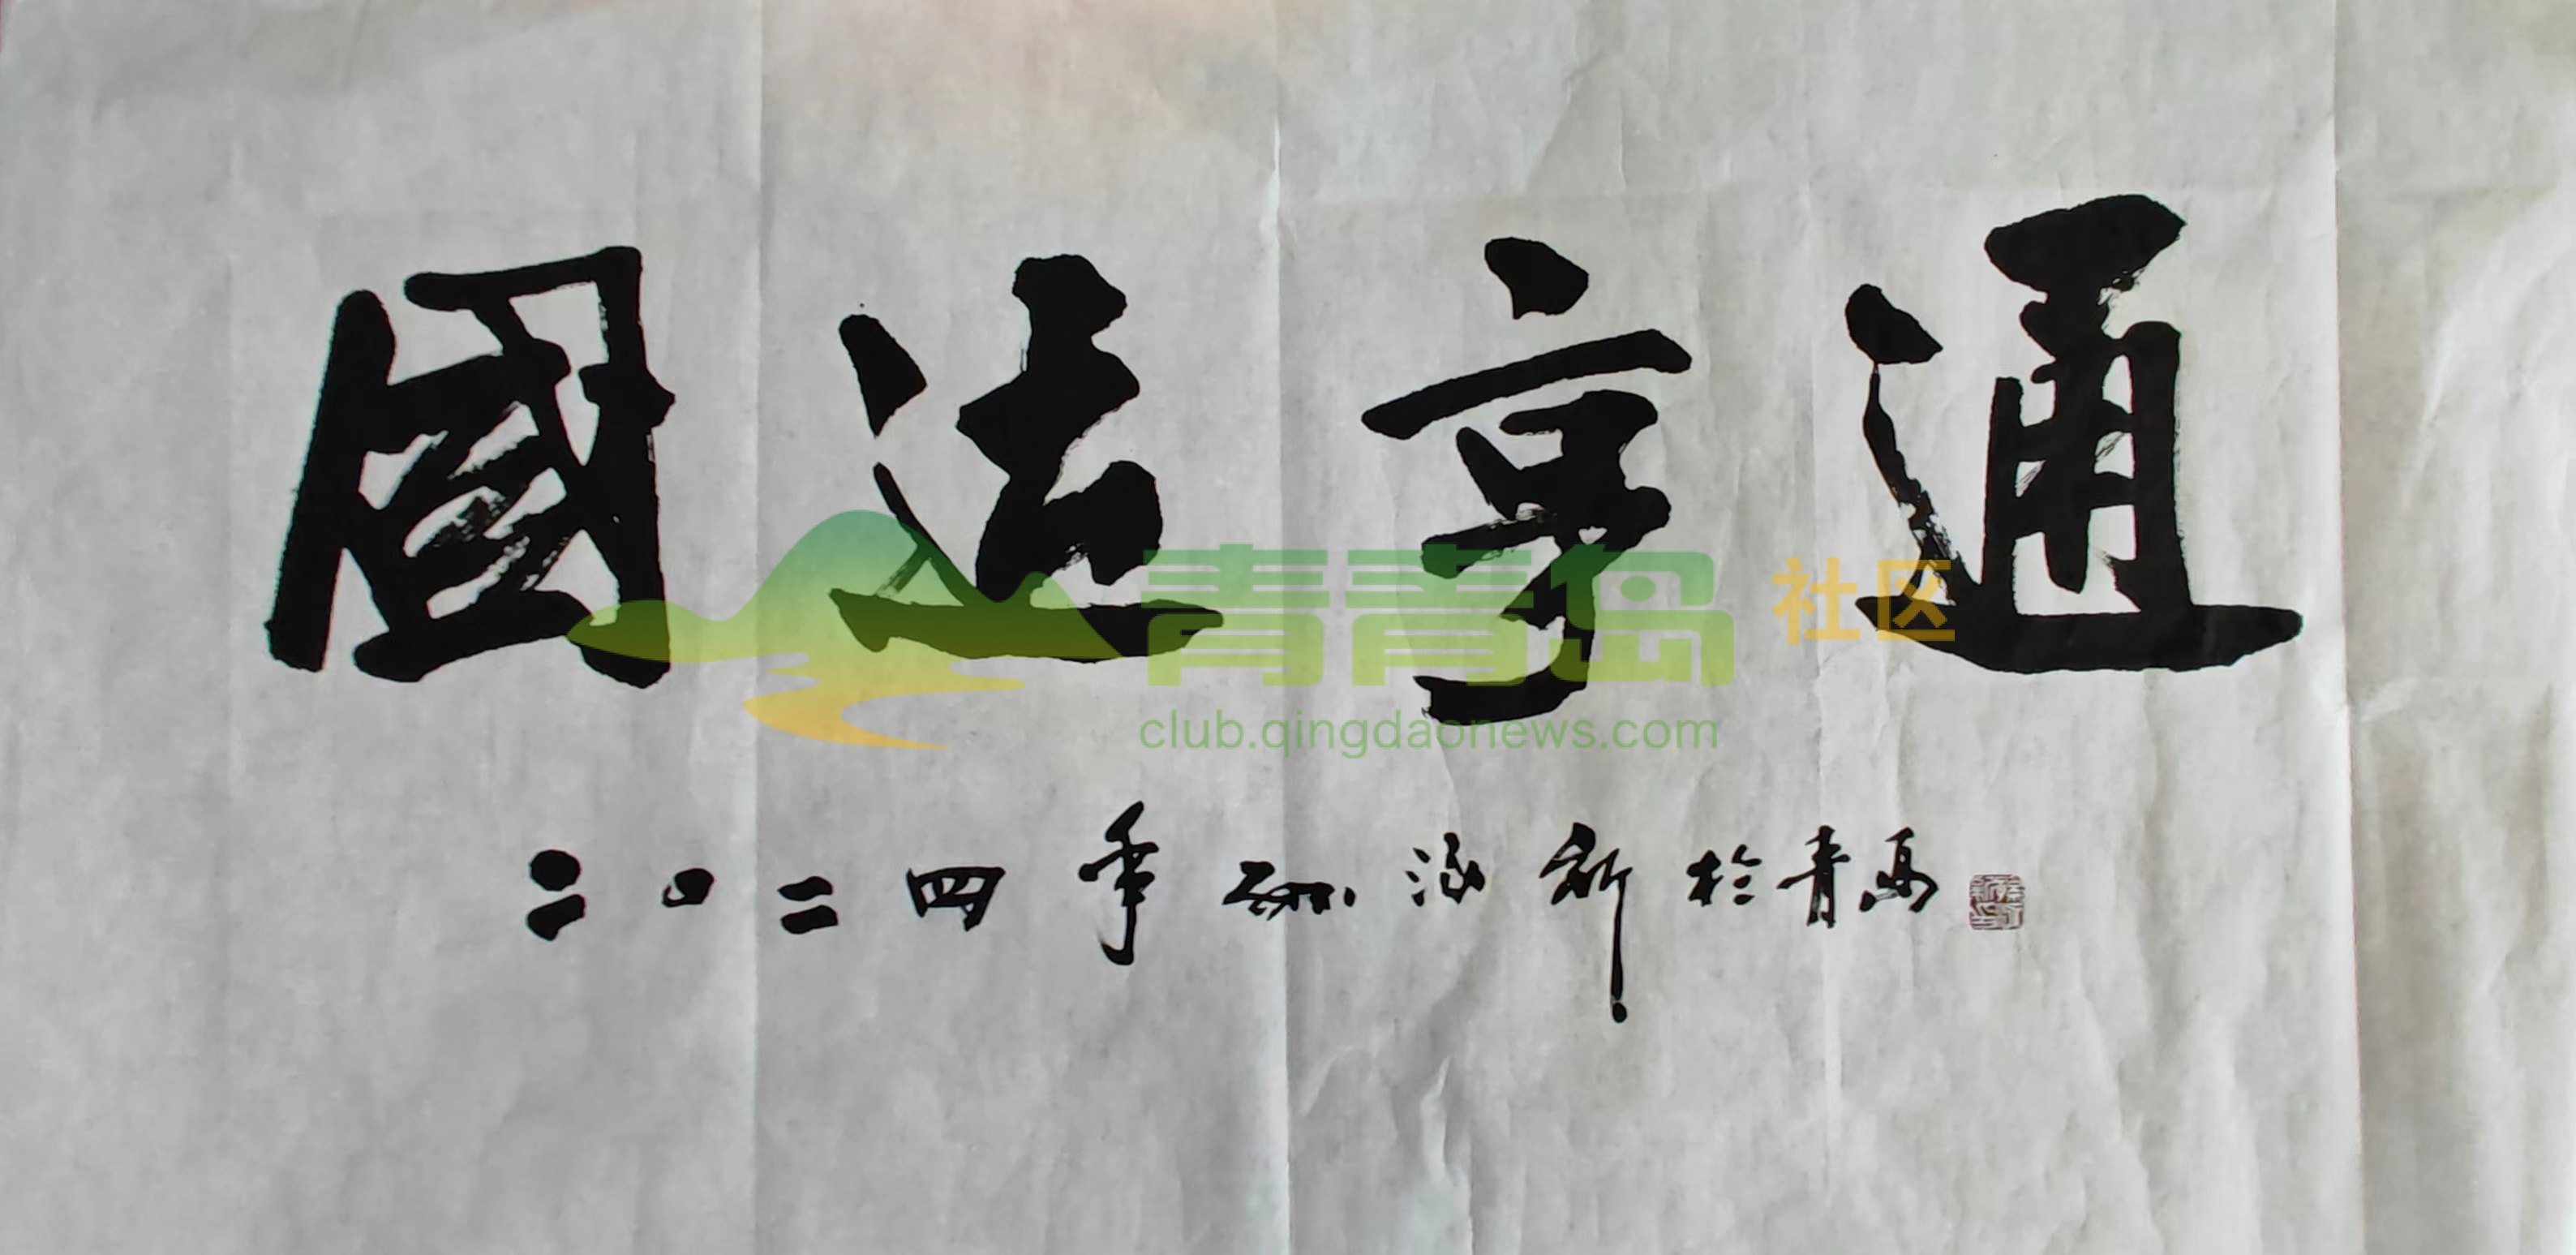 國运亨通
青青岛 社区
club.qingdaonews.com
二〇二四年 新於青島